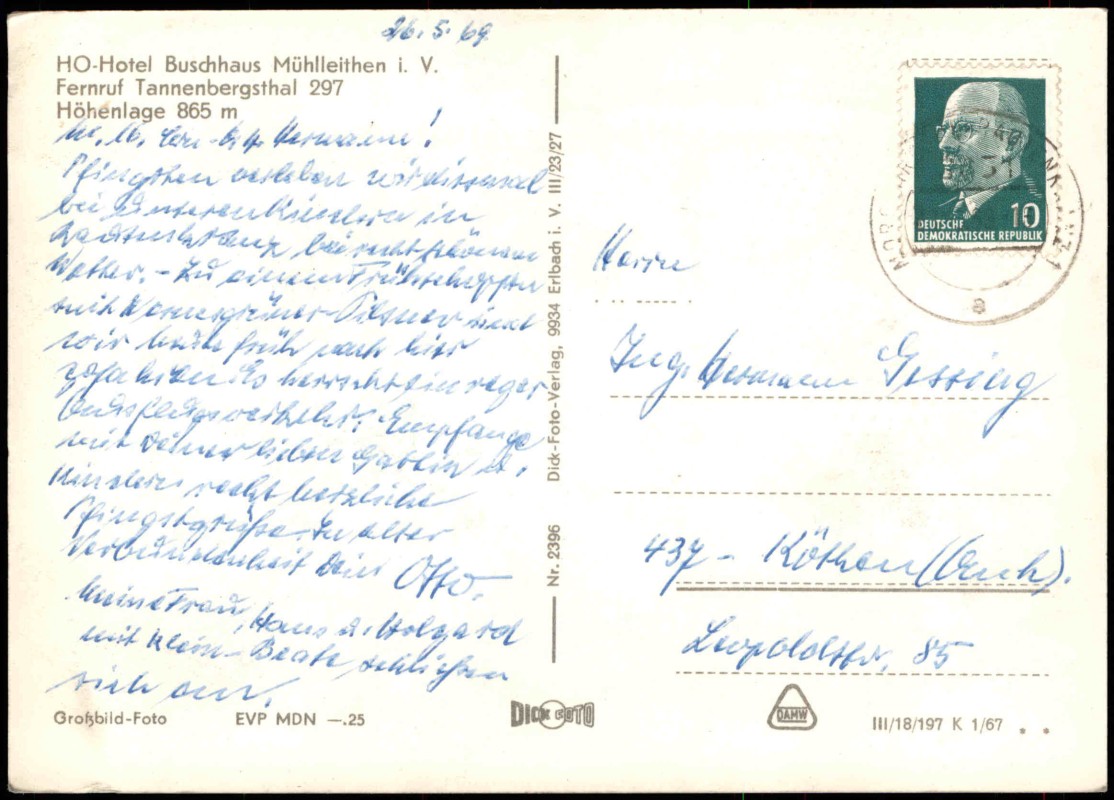 26.5.69
HO-Hotel Buschhaus Mühlleithen i. V.
Fernruf Tannenbergsthal 297
Höhenlage 865 m
Hermann!
Pfingsten verleben wir diesmal
bei unseren Kindern in
bei recht schönem
Wetter. - Zu einem Frühschoppen
mit Wernesgrüner Pilsner sind
wir heute früh nach hier
gefahren. Es herrscht ein reger
Ausflugsverkehr. Empfange
mit Deiner lieben Gattin u.
Kindern recht herzliche
Pfingstgrüße. In alter
Verbundenheit Dein Otto.
Meine Frau, Hans u. Holgard
mit Klein-Beate schließen
sich an.
Großbild-Foto EVP MDN —.25
Nr. 2396 Dick-Foto-Verlag, 9934 Erlbach i. V. III/23/27
DICK FOTO
DEUTSCHE
DEMOKRATISCHE REPUBLIK
10
a
Herrn
Ing. Hermann Gessing
437 - Köthen (Anh).
Leopoldstr. 85
DAMW
III/18/197 K 1/67